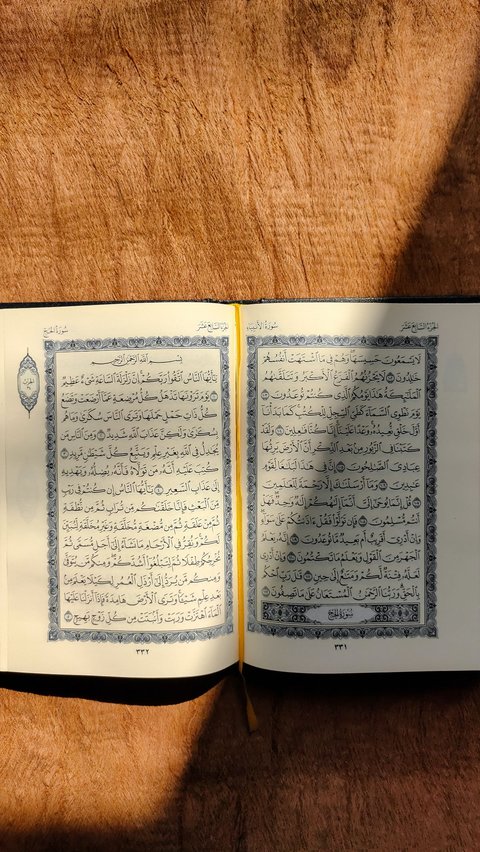 الجزء السابع عشر سورة الأنبياء
لَا يَسْمَعُونَ حَسِيسَهَا وَهُمْ فِي مَا ٱشْتَهَتْ أَنفُسُهُمْ
خَٰلِدُونَ ١٠٢ لَا يَحْزُنُهُمُ ٱلْفَزَعُ ٱلْأَكْبَرُ وَتَتَلَقَّىٰهُمُ
ٱلْمَلَٰٓئِكَةُ هَٰذَا يَوْمُكُمُ ٱلَّذِي كُنتُمْ تُوعَدُونَ ١٠٣
يَوْمَ نَطْوِي ٱلسَّمَآءَ كَطَيِّ ٱلسِّجِلِّ لِلْكُتُبِ كَمَا بَدَأْنَآ
أَوَّلَ خَلْقٍ نُّعِيدُهُۥ وَعْدًا عَلَيْنَآ إِنَّا كُنَّا فَٰعِلِينَ ١٠٤ وَلَقَدْ
كَتَبْنَا فِي ٱلزَّبُورِ مِنۢ بَعْدِ ٱلذِّكْرِ أَنَّ ٱلْأَرْضَ يَرِثُهَا
عِبَادِيَ ٱلصَّٰلِحُونَ ١٠٥ إِنَّ فِي هَٰذَا لَبَلَٰغًا لِّقَوْمٍ
عَٰبِدِينَ ١٠٦ وَمَآ أَرْسَلْنَٰكَ إِلَّا رَحْمَةً لِّلْعَٰلَمِينَ
١٠٧ قُلْ إِنَّمَا يُوحَىٰٓ إِلَيَّ أَنَّمَآ إِلَٰهُكُمْ إِلَٰهٌ وَٰحِدٌ فَهَلْ
أَنتُم مُّسْلِمُونَ ١٠٨ فَإِن تَوَلَّوْا۟ فَقُلْ ءَاذَنتُكُمْ عَلَىٰ سَوَآءٍ
وَإِنْ أَدْرِيٓ أَقَرِيبٌ أَم بَعِيدٌ مَّا تُوعَدُونَ ١٠٩ إِنَّهُۥ يَعْلَمُ
ٱلْجَهْرَ مِنَ ٱلْقَوْلِ وَيَعْلَمُ مَا تَكْتُمُونَ ١١٠ وَإِنْ أَدْرِي
لَعَلَّهُۥ فِتْنَةٌ لَّكُمْ وَمَتَٰعٌ إِلَىٰ حِينٍ ١١١ قَٰلَ رَبِّ ٱحْكُم
بِٱلْحَقِّ وَرَبُّنَا ٱلرَّحْمَٰنُ ٱلْمُسْتَعَانُ عَلَىٰ مَا تَصِفُونَ ١١٢
سورة الحج
٣٣١
الجزء السابع عشر سورة الحج
بِسْمِ ٱللَّهِ ٱلرَّحْمَٰنِ ٱلرَّحِيمِ
يَٰٓأَيُّهَا ٱلنَّاسُ ٱتَّقُوا۟ رَبَّكُمْ إِنَّ زَلْزَلَةَ ٱلسَّاعَةِ شَيْءٌ عَظِيمٌ
١ يَوْمَ تَرَوْنَهَا تَذْهَلُ كُلُّ مُرْضِعَةٍ عَمَّآ أَرْضَعَتْ وَتَضَعُ
كُلُّ ذَاتِ حَمْلٍ حَمْلَهَا وَتَرَى ٱلنَّاسَ سُكَٰرَىٰ وَمَا هُم
بِسُكَٰرَىٰ وَلَٰكِنَّ عَذَابَ ٱللَّهِ شَدِيدٌ ٢ وَمِنَ ٱلنَّاسِ مَن
يُجَٰدِلُ فِي ٱللَّهِ بِغَيْرِ عِلْمٍ وَيَتَّبِعُ كُلَّ شَيْطَٰنٍ مَّرِيدٍ ٣
كُتِبَ عَلَيْهِ أَنَّهُۥ مَن تَوَلَّاهُ فَأَنَّهُۥ يُضِلُّهُۥ وَيَهْدِيهِ
إِلَىٰ عَذَابِ ٱلسَّعِيرِ ٤ يَٰٓأَيُّهَا ٱلنَّاسُ إِن كُنتُمْ فِي رَيْبٍ
مِّنَ ٱلْبَعْثِ فَإِنَّا خَلَقْنَٰكُم مِّن تُرَابٍ ثُمَّ مِن نُّطْفَةٍ
ثُمَّ مِنْ عَلَقَةٍ ثُمَّ مِن مُّضْغَةٍ مُّخَلَّقَةٍ وَغَيْرِ مُخَلَّقَةٍ لِّنُبَيِّنَ
لَكُمْ وَنُقِرُّ فِي ٱلْأَرْحَامِ مَا نَشَآءُ إِلَىٰٓ أَجَلٍ مُّسَمًّى ثُمَّ
نُخْرِجُكُمْ طِفْلًا ثُمَّ لِتَبْلُغُوٓا۟ أَشُدَّكُمْ وَمِنكُم مَّن يُتَوَفَّىٰ
وَمِنكُم مَّن يُرَدُّ إِلَىٰٓ أَرْذَلِ ٱلْعُمُرِ لِكَيْلَا يَعْلَمَ مِنۢ
بَعْدِ عِلْمٍ شَيْـًٔا وَتَرَى ٱلْأَرْضَ هَامِدَةً فَإِذَآ أَنزَلْنَا عَلَيْهَا
ٱلْمَآءَ ٱهْتَزَّتْ وَرَبَتْ وَأَنۢبَتَتْ مِن كُلِّ زَوْجٍ بَهِيجٍ ٥
٣٣٢